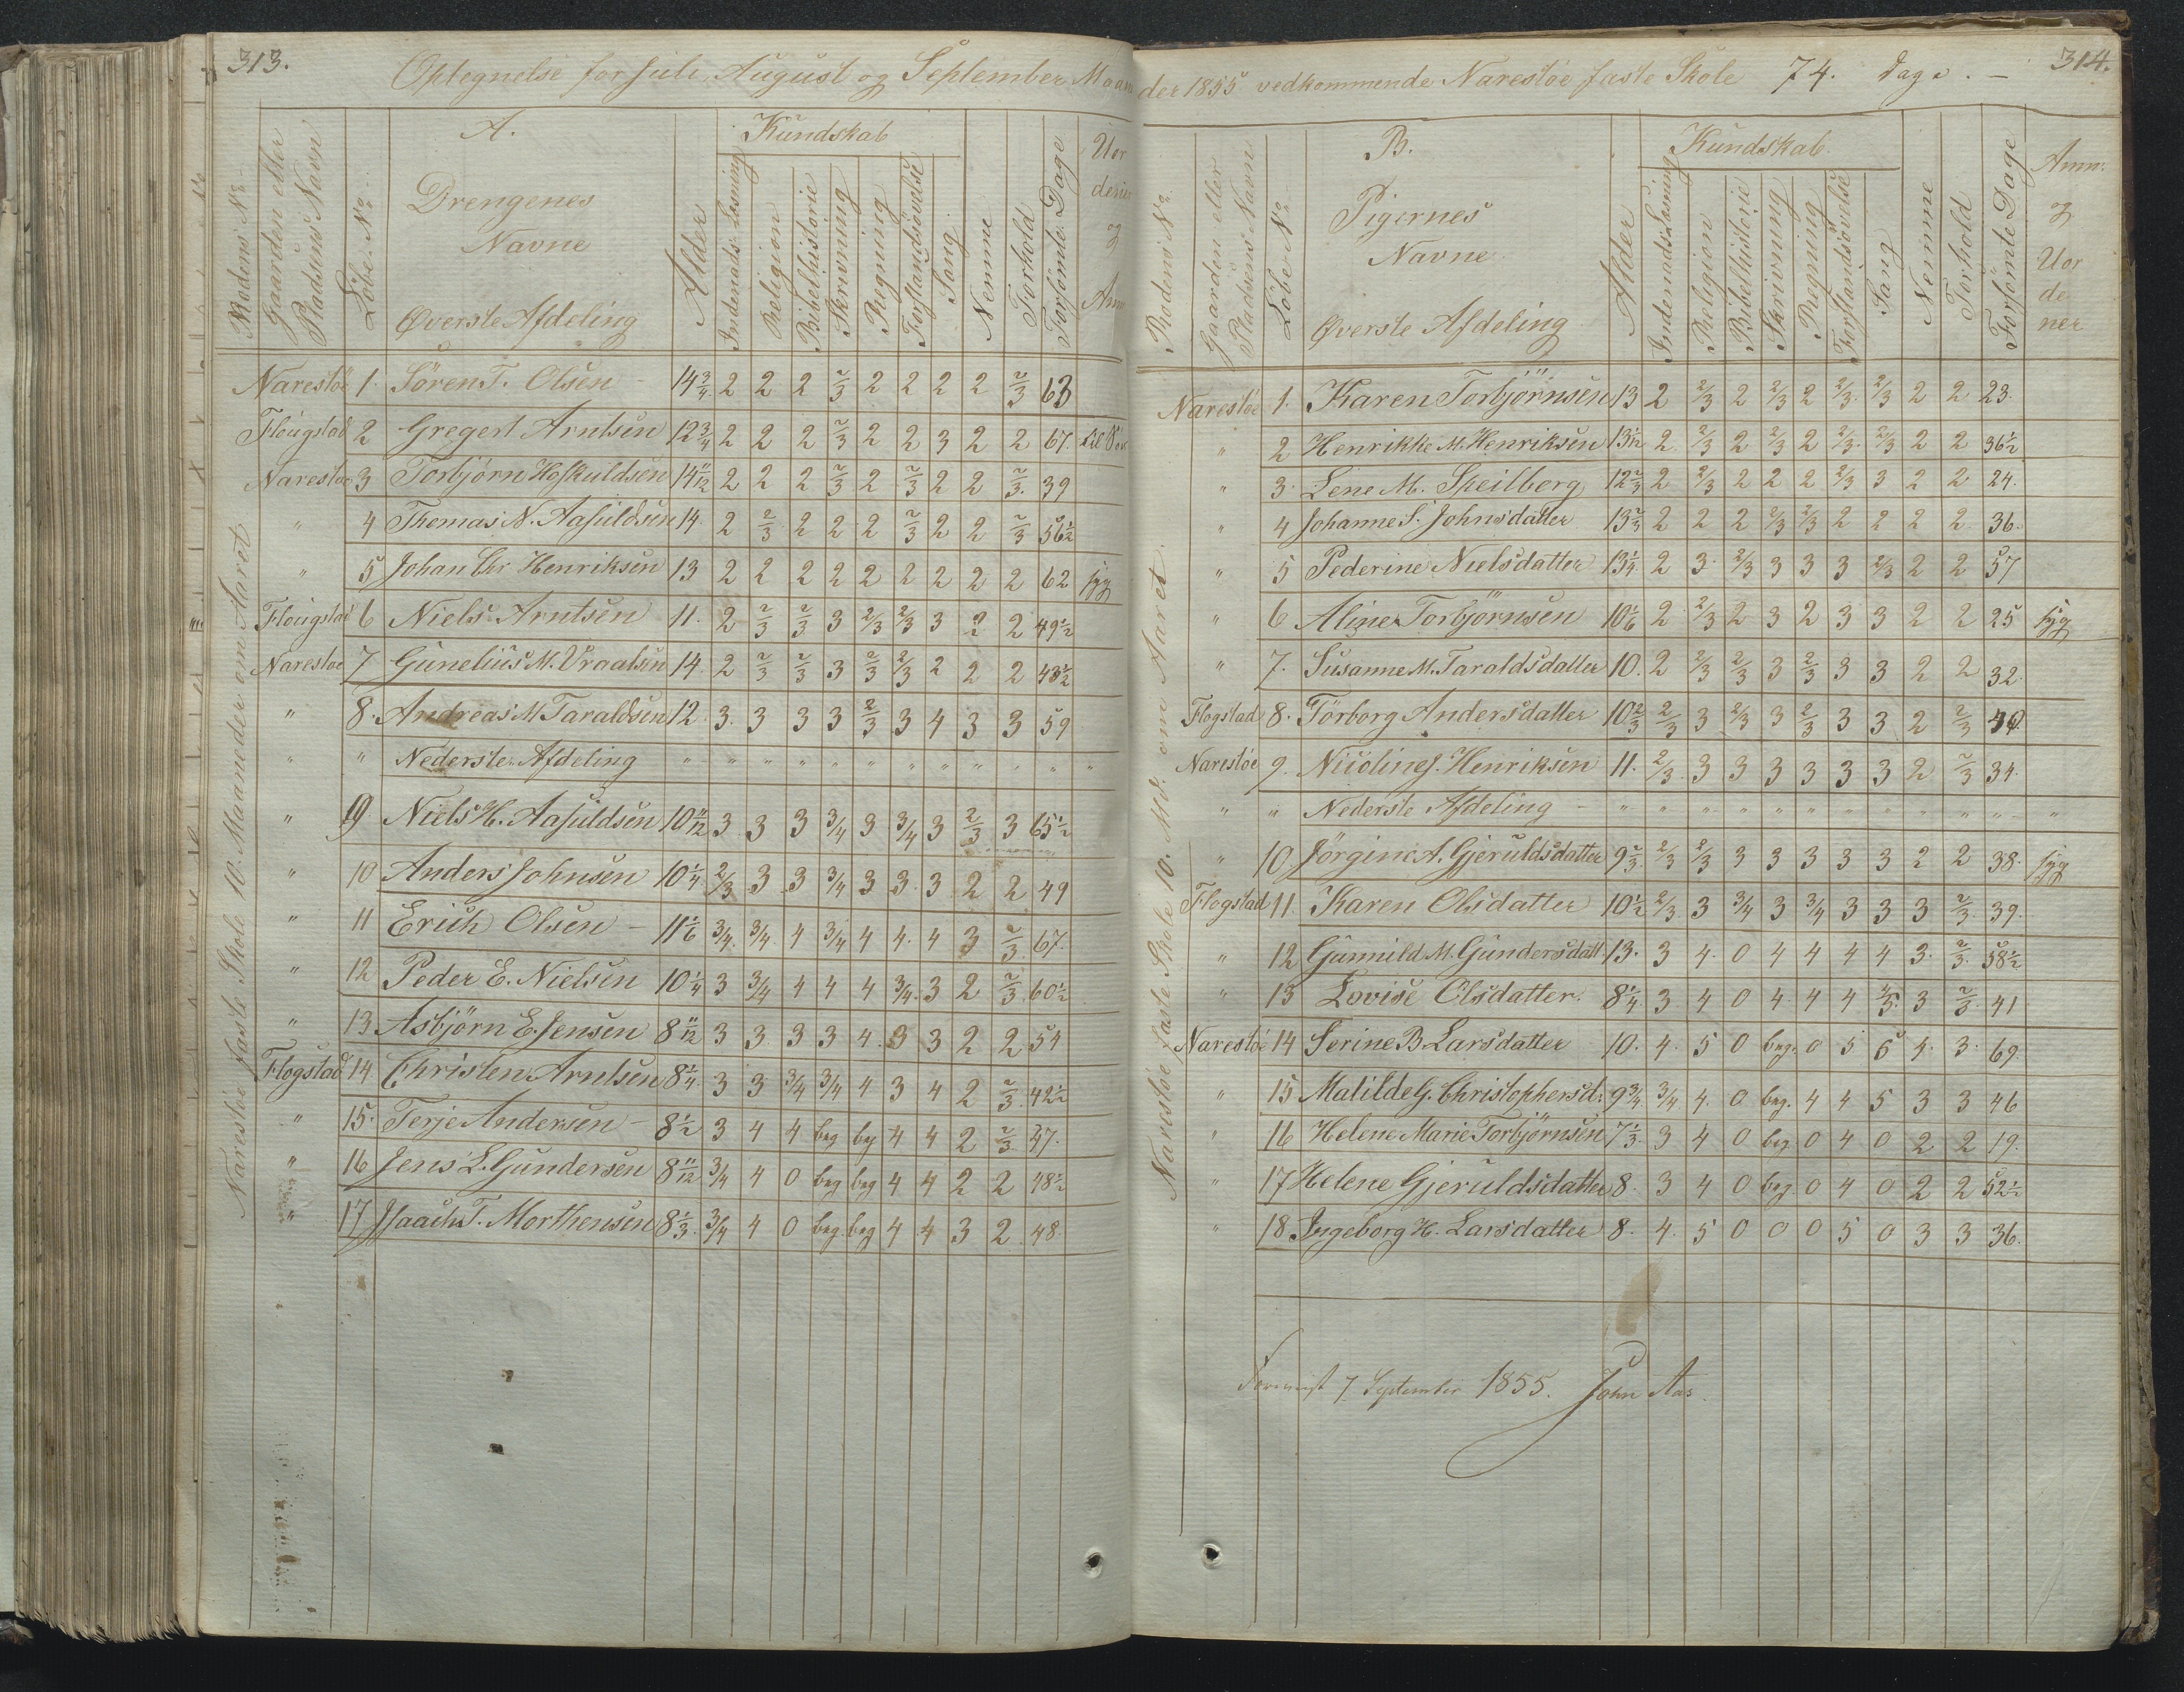 313.
Optegnelse for Juli, August og September Maan
A.
Kundskab
Rodens No
Gaarden eller Pladsens Navn
Løbe No
Drengenes
Navne
Øverste Afdeling
Alder
Indenads Læsning
Religion
Bibelhistorie
Skrivning
Regning
Forstandsøvelse
Sang
Nemme
Forhold
Forsømte Dage
Narestøe faste Skole 10 Maaneder om Aaret
Narestöe 1. Sören T. Olsen - 14 3/4 2 2 2 2/3 2 2 2 2 2/3 63
Flougstad 2 Gregert Arntsen 12 3/4 2 2 2 2/3 2 2 3 2 2 67.
Narestöe 3 Torbjörn Hofkuldsen 14 11/12 2 2 2 2/3 2 2/3 2 2 2/3. 39
" 4 Thomas N. Aasuldsen 14. 2 2/3 2 2 2 2/3 2 2 2/3 56 1/2
" 5 Johan Chr Henriksen 13 2 2 2 2 2 2 2 2 2 62 syg
Flougstad 6 Niels Arntsen 11. 2 2/3 2/3 3 2/3 2/3 3 2 2 49 1/2
Narestöe 7 Gunelius M. Vraalsen 14. 2 2/3 2/3 3 2/3 2/3 2 2 2 48 1/2
" 8. Andreas M. Taraldsen 12. 3. 3 3 3 2/3 3 4 3 3 59
" " Nederste Afdeling " " " " " " " " " " " "
" 9 Niels H. Aasuldsen 10 11/12 3 3 3 3/4 3 3/4 3 2/3 3 65 1/2
" 10 Anders Johnsen 10 1/4 2/3 3 3 3/4 3 3. 3 2 2 49
" 11 Erich Olsen - 11 1/6 3/4. 3/4. 4 3/4 4 4. 4 3 2/3. 67.
" 12 Peder E. Nielsen 10 1/4 3 3/4 4 4 4 3/4. 3 2 2/3. 60 1/2
" 13 Asbjörn E. Jensen 8 11/12 3 3 3 3 4. 3 3 2 2 54
Flogstad 14 Christen Arntsen 8 1/4. 3 3 3/4 3/4 4 3 4 2 2/3. 42 1/2
" 15. Terje Andersen - 8 1/2 3 4 4 beg beg 4 4 2 2/3. 47.
" 16 Jens L. Gundersen 8 11/12 3/4 4 0 beg beg 4 4 2 2 48 1/2
" 17 Isaach T. Morthensen 8 1/3. 3/4 4 0 beg. beg 4 4 3 2 48.
314.
der 1855 vedkommende Narestöe faste Skole 74. Dage. -
B.
Kundskab.
Rodens No
Gaarden eller Pladsens Navn
Løbe No
Pigernes
Navne
Øverste Afdeling
Alder
Indenads Læsning
Religion
Bibelhistorie
Skrivning
Regning
Forstandsøvelse
Sang
Nemme
Forhold
Forsömte Dage
Anm:
og
Uor
de
ner
Narestöe faste Skole 10. Mdr. om Aaret
Narestöe 1. Karen Torbjörnsen 13 2 2/3 2 2/3 2 2/3. 2/3 2 2 23.
" 2 Henrikke M. Henriksen 13 1/12 2 2/3 2 2/3 2 2/3. 2/3 2 2 36 1/2
" 3. Lene M. Skeilberg 12 2/3 2 2/3 2 2 2 2/3 3 2 2 24.
" 4 Johanne S. Johnsdatter 13 2/3 2 2 2 2/3 2/3 2 2 2 2. 36.
" 5 Pederine Nielsdatter 13 1/4 2 3. 2/3 3 3 3 2/3 2 2 57
" 6 Aline Torbjörnsen 10 1/6 2 2/3 2 3 2 3 3 2 2 25 syg
" 7. Susanne M. Taraldsdatter 10. 2 2/3 2/3 3 2/3 3 3 2 2 32.
Flogstad 8. Törborg Andersdatter 10 2/3 2/3 3 2/3 3 2/3 3 3 2 2/3
Narestöe 9. Nicoline J. Henriksen 11. 2/3. 3 3 3 3 3 3 2 2/3 34.
" " Nederste Afdeling - " " " " " " " " " " "
" 10 Jörgine A. Gjeruldsdatter 9 2/3. 2/3 2/3 3 3 3 3 3 2 2 38. syg
Flogstad 11. Karen Olsdatter 10 1/2 2/3 3 3/4 3 3/4 3 3 3 2/3. 39.
" 12 Gunnild M. Gundersdatt. 13. 3 4. 0 4 4 4 4 3. 2/3. 58 1/2
" 13 Lovise Olsdatter. 8 1/4. 3. 4 0 4. 4 4 4/5. 3 2/3. 41
Narestöe 14 Serine B. Larsdatter 10. 4. 5 0 beg. 0 5 5 4. 3. 69.
" 15 Matilde G. Christophersd: 9 3/4 3/4 4. 0 beg. 4 4 5 3 3 46
" 16 Helene Marie Torbjörnsen 7 1/3. 3 4 0 beg. 0 4 0 2 2 19.
" 17 Helene Gjeruldsdatter 8. 3 4 0 beg. 0 4 0 2 2 52 1/2
" 18. Ingeborg H. Larsdatter 8. 4. 5 0 0 0 5 0 3 3 36.
Foreviist 7 September 1855. John Aas.